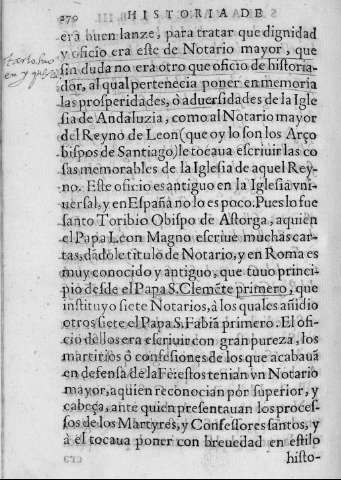 270 HISTORIA DE
era buen lanze, para tratar que dignidad
y oficio era este de Notario mayor, que
sin duda no era otro que oficio de historia-
dor, al qual pertenecia poner en memoria
las prosperidades, ò aduersidades de la Igle
sia de Andaluzia, como al Notario mayor
del Reyno de Leon (que oy lo son los Arço
bispos de Santiago) le tocaua escriuir las co
sas memorables de la Iglesia de aquel Rey-
no. Este oficio es antiguo en la Iglesia vni-
uersal, y en España no lo es poco. Pues lo fue
santo Toribio Obispo de Astorga, a quien
el Papa Leon Magno escriue muchas car-
tas, dãdole titulo de Notario, y en Roma es
muy conocido y antiguo, que tuuo princi-
pio desde el Papa S. Clemẽte primero, que
instituyo siete Notarios, à los quales añidio
otros siete el Papa S. Fabiã primero. El ofi-
cio dellos era escriuir con gran pureza, los
martirios ò confesiones de los que acabauã
en defensa de la Fè: estos tenian vn Notario
mayor, a quien reconocian por superior, y
cabeça, ante quien presentauan los proces-
sos de los Martyres, y Confessores santos, y
à el tocaua poner con breuedad en estilo
histo-